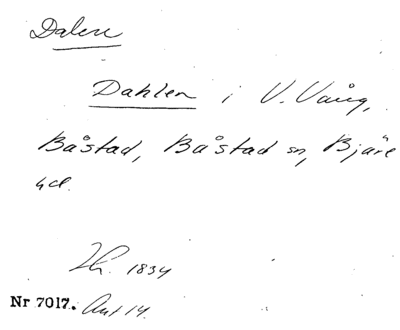 Dalen
Dahlen i V. Vång,
Båstad, Båstad sn, Bjäre
hd.
1834
Nr 7017. Akt 14.